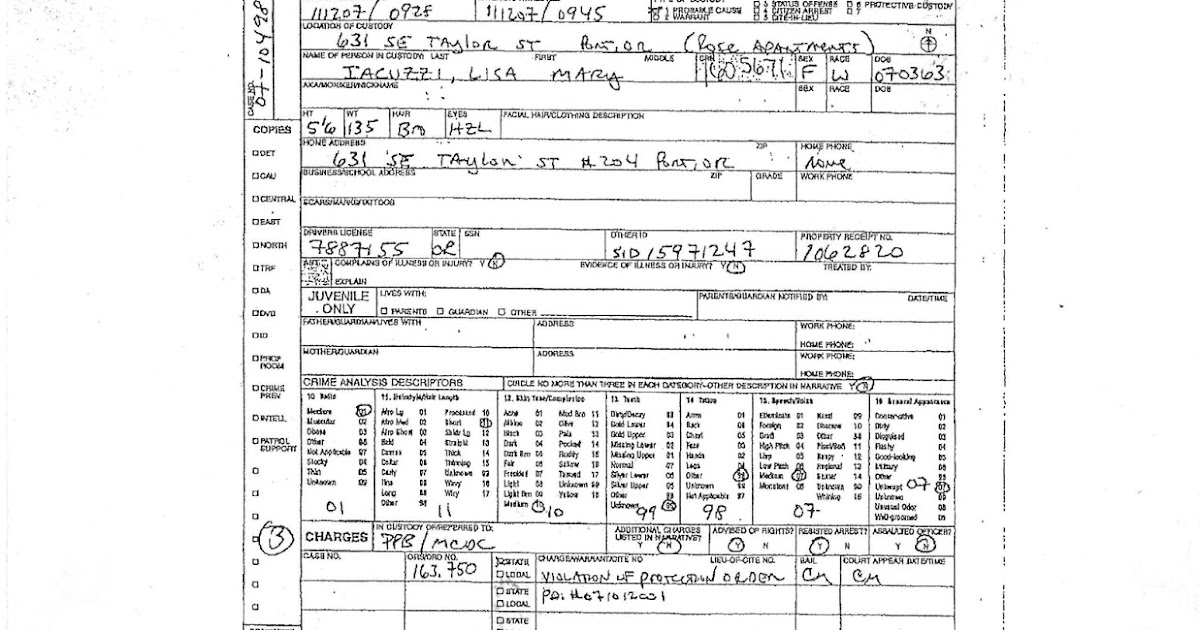 111207/0928 111207/0945
1 PROBABLE CAUSE 3 STATUS OFFENSE 6 PROTECTIVE CUSTODY
2 WARRANT 4 CITIZEN ARREST 7
5 CITE-IN-LIEU
LOCATION OF CUSTODY
631 SE TAYLOR ST PORT, OR (ROSE APARTMENTS)
N
NAME OF PERSON IN CUSTODY: LAST FIRST MIDDLE CRN SEX RACE DOB
IACUZZI, LISA MARY 605671 F W 070363
AKA/MONIKER/NICKNAME SEX RACE DOB
CASE NO. 07-10498
HT WT HAIR EYES FACIAL HAIR/CLOTHING DESCRIPTION
5'6 135 BRO HZL
HOME ADDRESS ZIP HOME PHONE
631 SE TAYLOR ST #204 PORT, OR NONE
BUSINESS/SCHOOL ADDRESS ZIP GRADE WORK PHONE
SCARS/MARKS/TATTOOS
DRIVERS LICENSE STATE SSN OTHER ID PROPERTY RECEIPT NO.
7887155 OR SID 15971247 1062820
COMPLAINS OF ILLNESS OR INJURY? Y N EVIDENCE OF ILLNESS OR INJURY? Y N TREATED BY:
EXPLAIN
JUVENILE ONLY LIVES WITH: PARENTS/GUARDIAN NOTIFIED BY: DATE/TIME
PARENTS GUARDIAN OTHER
FATHER/GUARDIAN/LIVES WITH ADDRESS WORK PHONE:
HOME PHONE:
MOTHER/GUARDIAN ADDRESS WORK PHONE:
HOME PHONE:
COPIES
DET
CAU
CENTRAL
EAST
NORTH
TRF
DA
DVD
ID
PROP ROOM
CRIME PREV
INTELL
PATROL SUPPORT
3
CRIME ANALYSIS DESCRIPTORS CIRCLE NO MORE THAN THREE IN EACH CATEGORY-OTHER DESCRIPTION IN NARRATIVE Y N
10 Build
Medium 01
Muscular 02
Obese 03
Other 98
Not Applicable 97
Stocky 04
Thin 05
Unknown 99
01
11. Hairstyle/Hair Length
Afro Lg 01 Processed 10
Afro Med 02 Short 11
Afro Short 03 Shldr Lg 12
Bald 04 Straight 13
Coarse 05 Thick 14
Collar 06 Thinning 15
Curly 07 Unknown 99
Fine 08 Wavy 16
Long 09 Wiry 17
Other 98
11
12. Skin Tone/Complexion
Acne 01 Med Brn 11
Albino 02 Olive 12
Black 03 Pale 13
Dark 04 Pocked 14
Dark Brn 05 Ruddy 15
Fair 06 Sallow 16
Freckled 07 Tanned 17
Light 08 Unknown 99
Light Brn 09 Yellow 18
Medium 10
10
13. Teeth
Dirty/Decay
Gold Lower
Gold Upper
Missing Lower
Missing Upper
Normal
Silver Lower
Silver Upper
Other
Unknown 99
99
14 Tattoo
Arms 01
Back 04
Chest 05
Face 03
Hands 02
Legs
Other 98
Unknown
Not Applicable 97
98
15. Speech/Voice
Effeminate 01 Nasal 09
Foreign 02 Obscene 10
Gruff 03 Other 98
High Pitch 04
Lisp 05 Raspy 12
Low Pitch 06 Regional 13
Medium 07 14
Monotone 08 Unknown 99
Whining 15
07
16 General Appearance
Conservative 01
Dirty 02
Disguised 03
Flashy 04
Good-looking 05
Military 06
Other 98
Unkempt 07
Unknown 99
Unusual Odor
Well-groomed
07
CHARGES IN CUSTODY OF/REFERRED TO: ADDITIONAL CHARGES LISTED IN NARRATIVE? ADVISED OF RIGHTS? RESISTED ARREST? ASSAULTED OFFICER?
PPB/MCDC Y N Y N Y N Y N
CASE NO. ORS/ORD NO. STATE LOCAL CHARGE/WARRANT/CITE NO LIEU-OF-CITE NO. BAIL COURT APPEAR DATE/TIME
163.750 VIOLATION OF PROTECTION ORDER
STATE
LOCAL
STATE